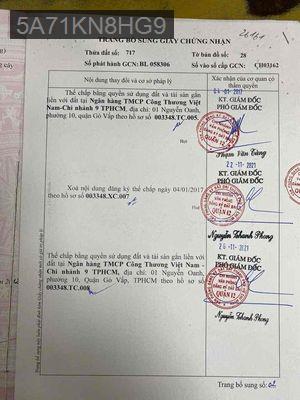 5A71KN8HG9
TRANG BỔ SUNG GIẤY CHỨNG NHẬN
Thửa đất số: 717 Tờ bản đồ số: 28
Số phát hành GCN: BL 058306 Số vào sổ cấp GCN: CH03362
Nội dung thay đổi và cơ sở pháp lý
Xác nhận của cơ quan có thẩm quyền
Thế chấp bằng quyền sử dụng đất và tài sản gắn
liền với đất tại Ngân hàng TMCP Công Thương Việt
Nam-Chi nhánh 9 TPHCM, địa chỉ: 01 Nguyễn Oanh,
phường 10, quận Gò Vấp theo hồ sơ số 003348.TC.005.
04-01-2017
KT. GIÁM ĐỐC
PHÓ GIÁM ĐỐC
Phạm Văn Tăng
Xoá nội dung đăng ký thế chấp ngày 04/01/2017
theo hồ sơ số 003348.XC.007
22-11-2021
KT. GIÁM ĐỐC
PHÓ GIÁM ĐỐC
Nguyễn Thanh Phong
Thế chấp bằng quyền sử dụng đất và tài sản gắn liền với
đất tại Ngân hàng TMCP Công Thương Việt Nam -
Chi nhánh 9 TPHCM, địa chỉ: 01 Nguyễn Oanh,
phường 10, Quận Gò Vấp, TPHCM theo hồ sơ số
003348.TC.008
26-11-2021
KT. GIÁM ĐỐC
PHÓ GIÁM ĐỐC
CHI NHÁNH
VĂN PHÒNG
ĐĂNG KÝ ĐẤT ĐAI
QUẬN 12
Nguyễn Thanh Phong
Trang bổ sung số: 01